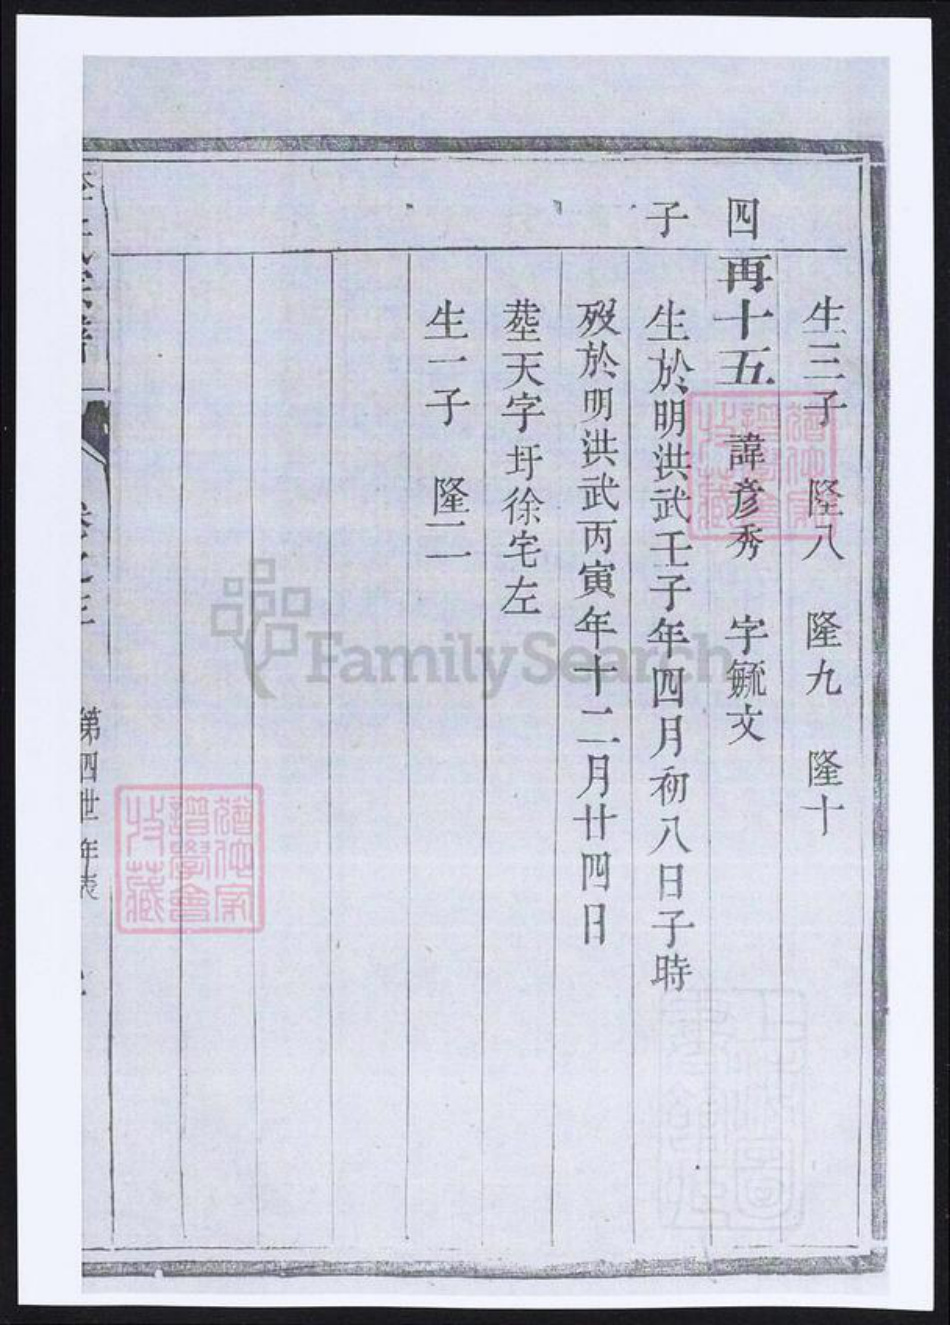 生三子　隆八　隆九　隆十
四 再十五　諱彥秀　字毓文
子 生於明洪武壬子年四月初八日子時
歿於明洪武丙寅年十二月廿四日
塟天字圩徐宅左
生一子　隆一
卷之三　第四世年表
FamilySearch